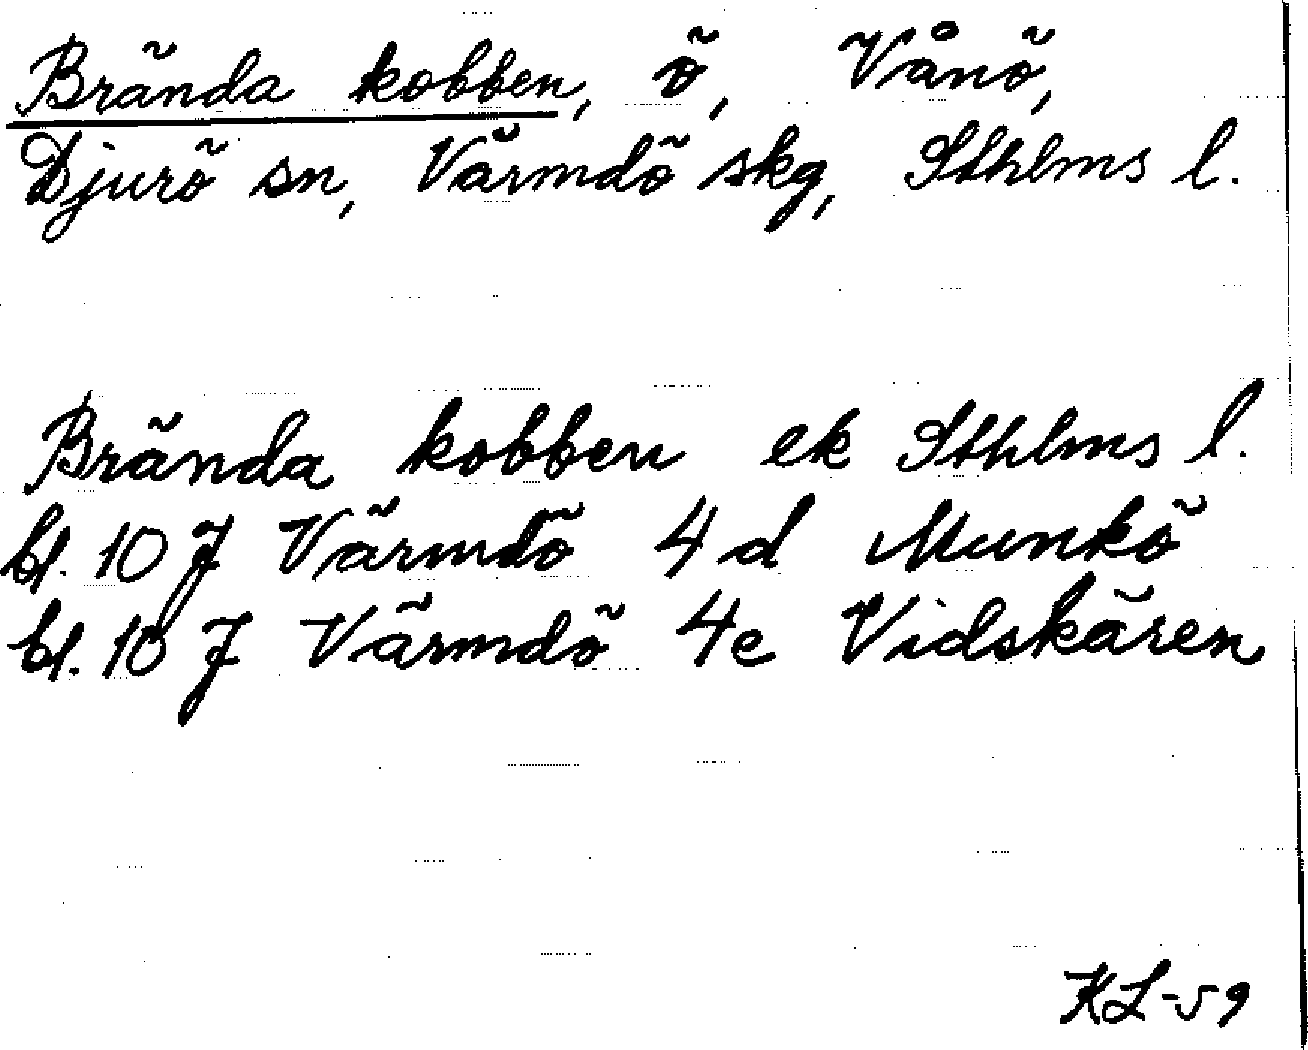 Brända kobben, ö, Vånö,
Djurö sn, Värmdö skg, Sthlms l.
Brända kobben ek Sthlms l.
bl. 10 J Värmdö 4 d Munkö
bl. 10 J Värmdö 4e Vidskären
KL-59